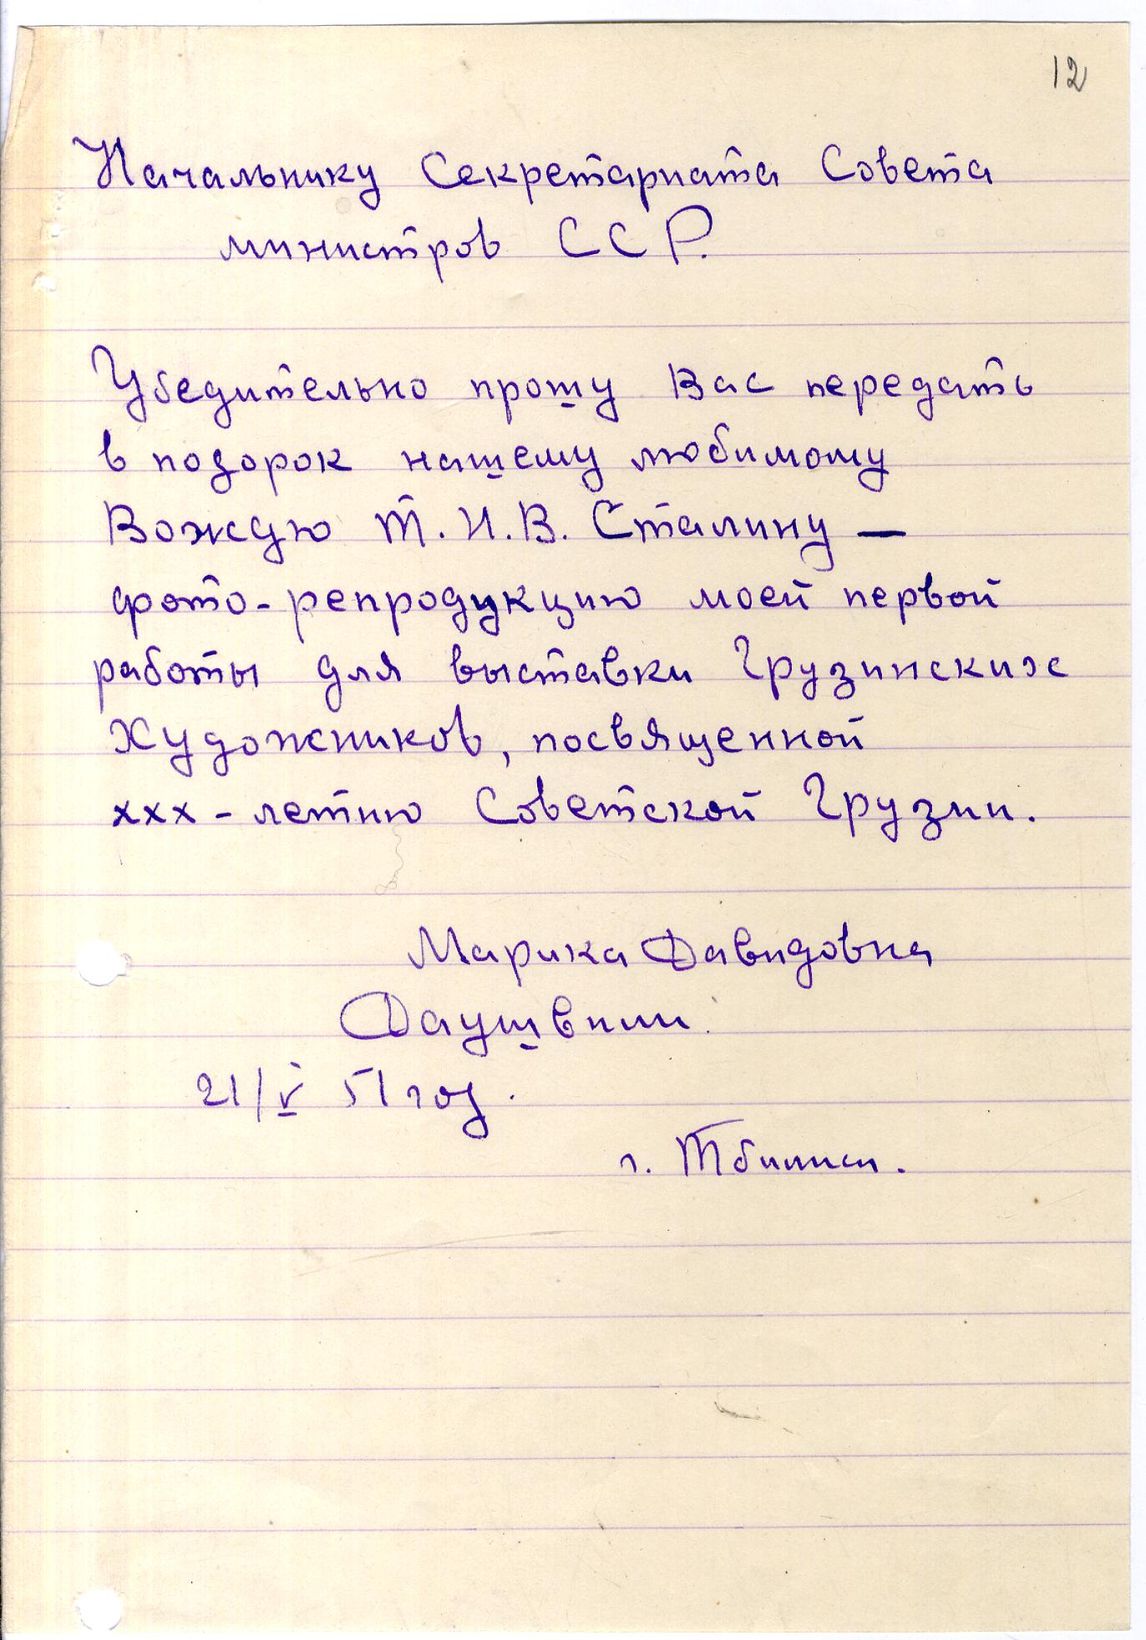 12
Начальнику Секретариата Совета
министров ССР.
Убедительно прошу Вас передать
в подорок нашему любимому
Вождю Т. И. В. Сталину —
фото-репродукцию моей первой
работы для выставки Грузинских
Художников, посвященной
ххх-летию Советской Грузии.
Марика Давидовна
Даушвили.
21/V 51 год.
г. Тбилиси.